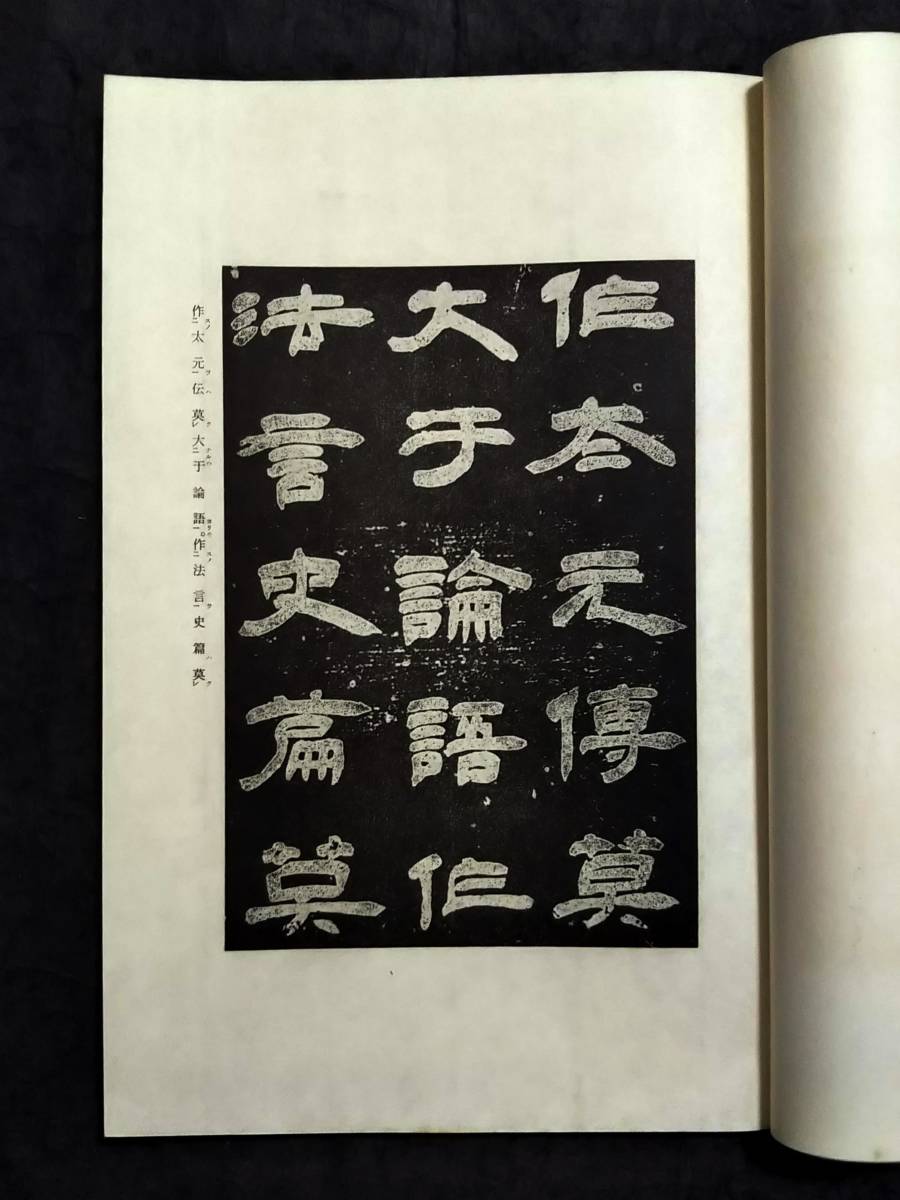 作太元傳莫
大于論語作
法言史篇莫
作太元伝莫大于論語。作法言史篇莫